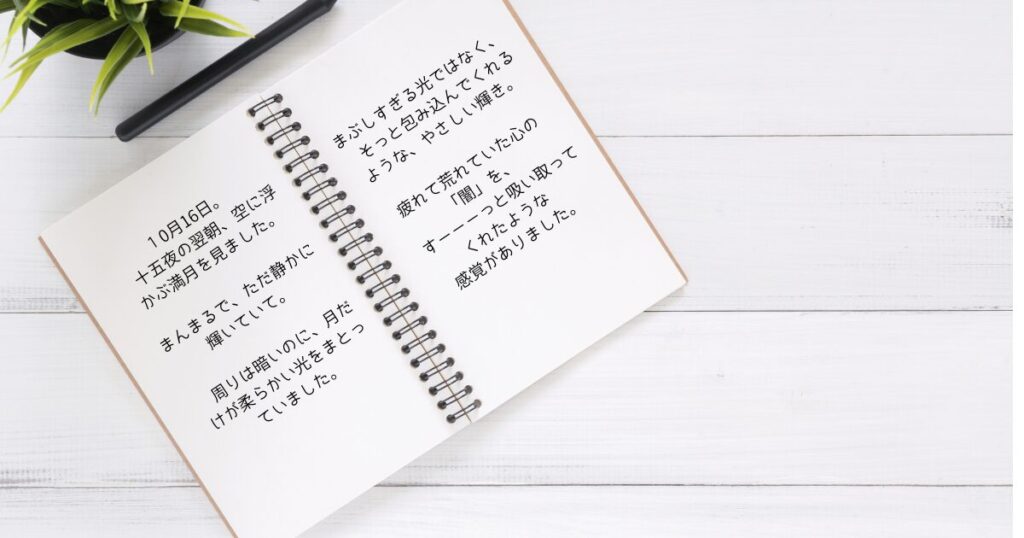 １０月16日。
十五夜の翌朝、空に浮
かぶ満月を見ました。
まんまるで、ただ静かに
輝いていて。
周りは暗いのに、月だ
けが柔らかい光をまとっ
ていました。
まぶしすぎる光ではなく、
そっと包み込んでくれる
ような、やさしい輝き。
疲れて荒れていた心の
「闇」を、
すーーーっと吸い取って
くれたような
感覚がありました。